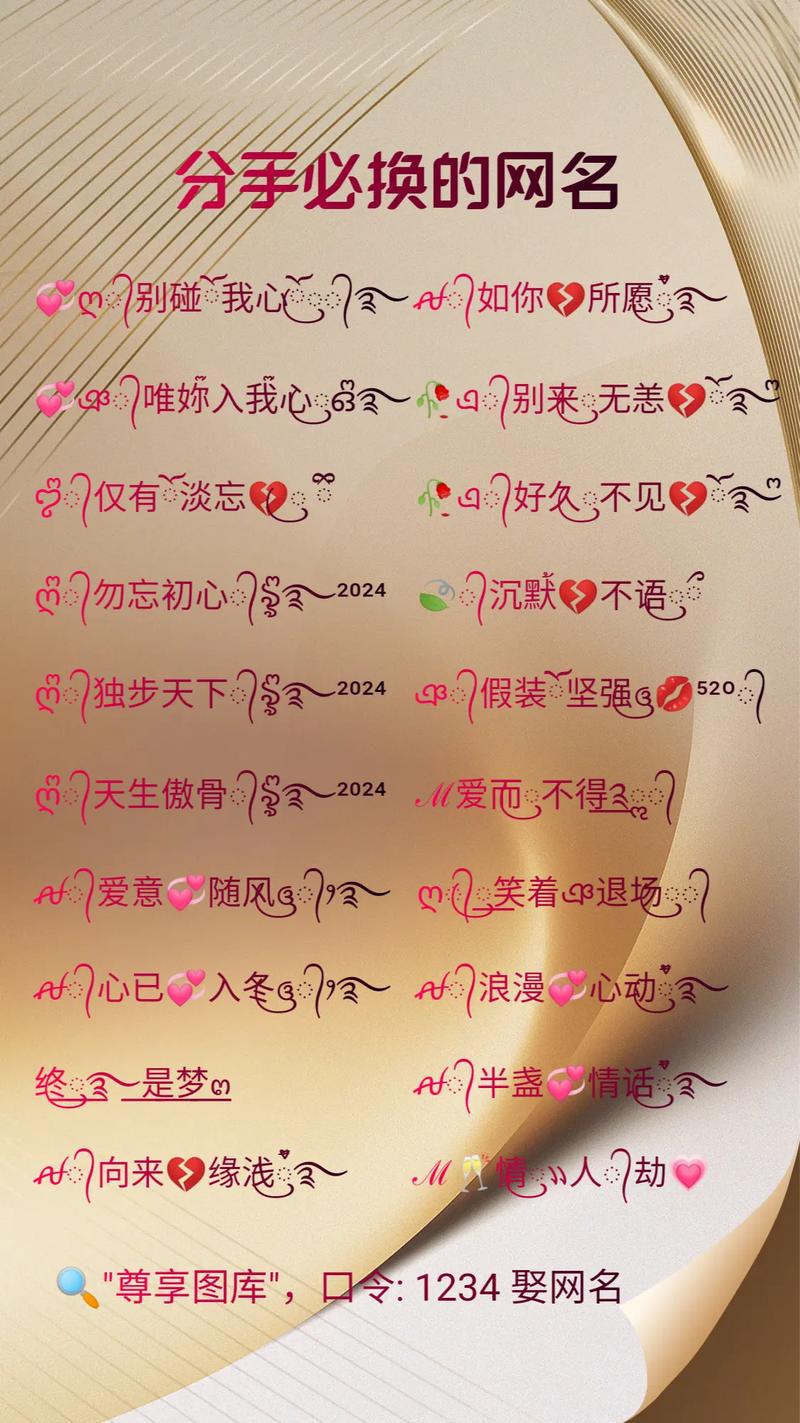 分手必换的网名
💞ღ᭄别碰ོ我心ོ꧔ꦿ᭄࿐ ꫛ᭄如你💔所愿ꦿ࿐
💞ঞ᭄唯妳入我心ꦿ჻ỗ࿐ 🥀এ᭄别来ꦿ无恙💔ོ࿐ო
ღ᭄仅有ོ淡忘💔ꦿ 🥀এ᭄好久ꦿ不见💔ོ࿐ო
ღ᭄勿忘初心᭄ꦿ࿐²⁰²⁴ 🍃᭄沉默💔不语ꦿ
ღ᭄独步天下᭄ꦿ࿐²⁰²⁴ ঞ᭄假装ོ坚强ꦿ💋⁵²⁰᭄
ღ᭄天生傲骨᭄ꦿ࿐²⁰²⁴ ℳ爱而ꦿ不得ꦿ᭄
ꫛ᭄爱意💞随风ꦿ᭄࿐ ღ᭄笑着ঞ退场ꦿ᭄
ꫛ᭄心已💞入冬ꦿ᭄࿐ ꫛ᭄浪漫💞心动ꦿ࿐
终ꦿ࿐是梦ო ꫛ᭄半盏💞情话ꦿ࿐
ꫛ᭄向来💔缘浅ꦿ࿐ ℳ🥂情ꦿ༅人᭄劫💗
🔍"尊享图库"，口令: 1234 娶网名